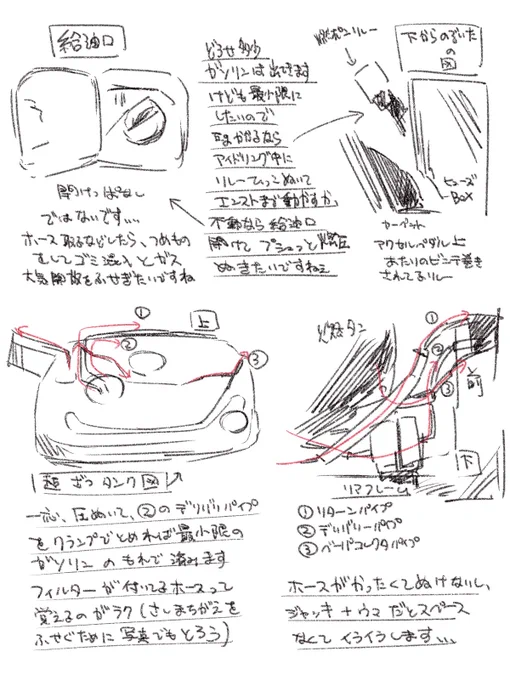 給油口
開けっぱなし
ではないです…
ホース取るなどしたら、つめもの
をしてゴミ混入とガス
大気開放をふせぎたいですね
どうせ多少
ガソリンは出てきます
けども最小限に
したいので
エンジンかかるなら
アイドリング中に
リレーひっこぬいて
エンストまで動かすか、
不動なら給油口
開けてプシュっと燃圧
ぬきたいですねぇ
燃ポンリレー
下からのぞいた
の図
ヒューズ
BOX
カーペット
アクセルペダル上
あたりのビニテ巻き
されてるリレー
①
上
②
③
超ざつタンク図
一応、圧ぬいて、②のデリバリパイプ
をクランプでとめれば最小限の
ガソリンのもれで済みます
フィルターが付いてるホースって
覚えるのがラク(さしまちがえを
ふせぐために写真でもとろう)
燃タン
①
②
③
前
下
リアフレーム
①リターンパイプ
②デリバリーパイプ
③ベーパコレクタパイプ
ホースがかったくてぬけないし、
ジャッキ+ウマだとスペース
なくてイライラします…